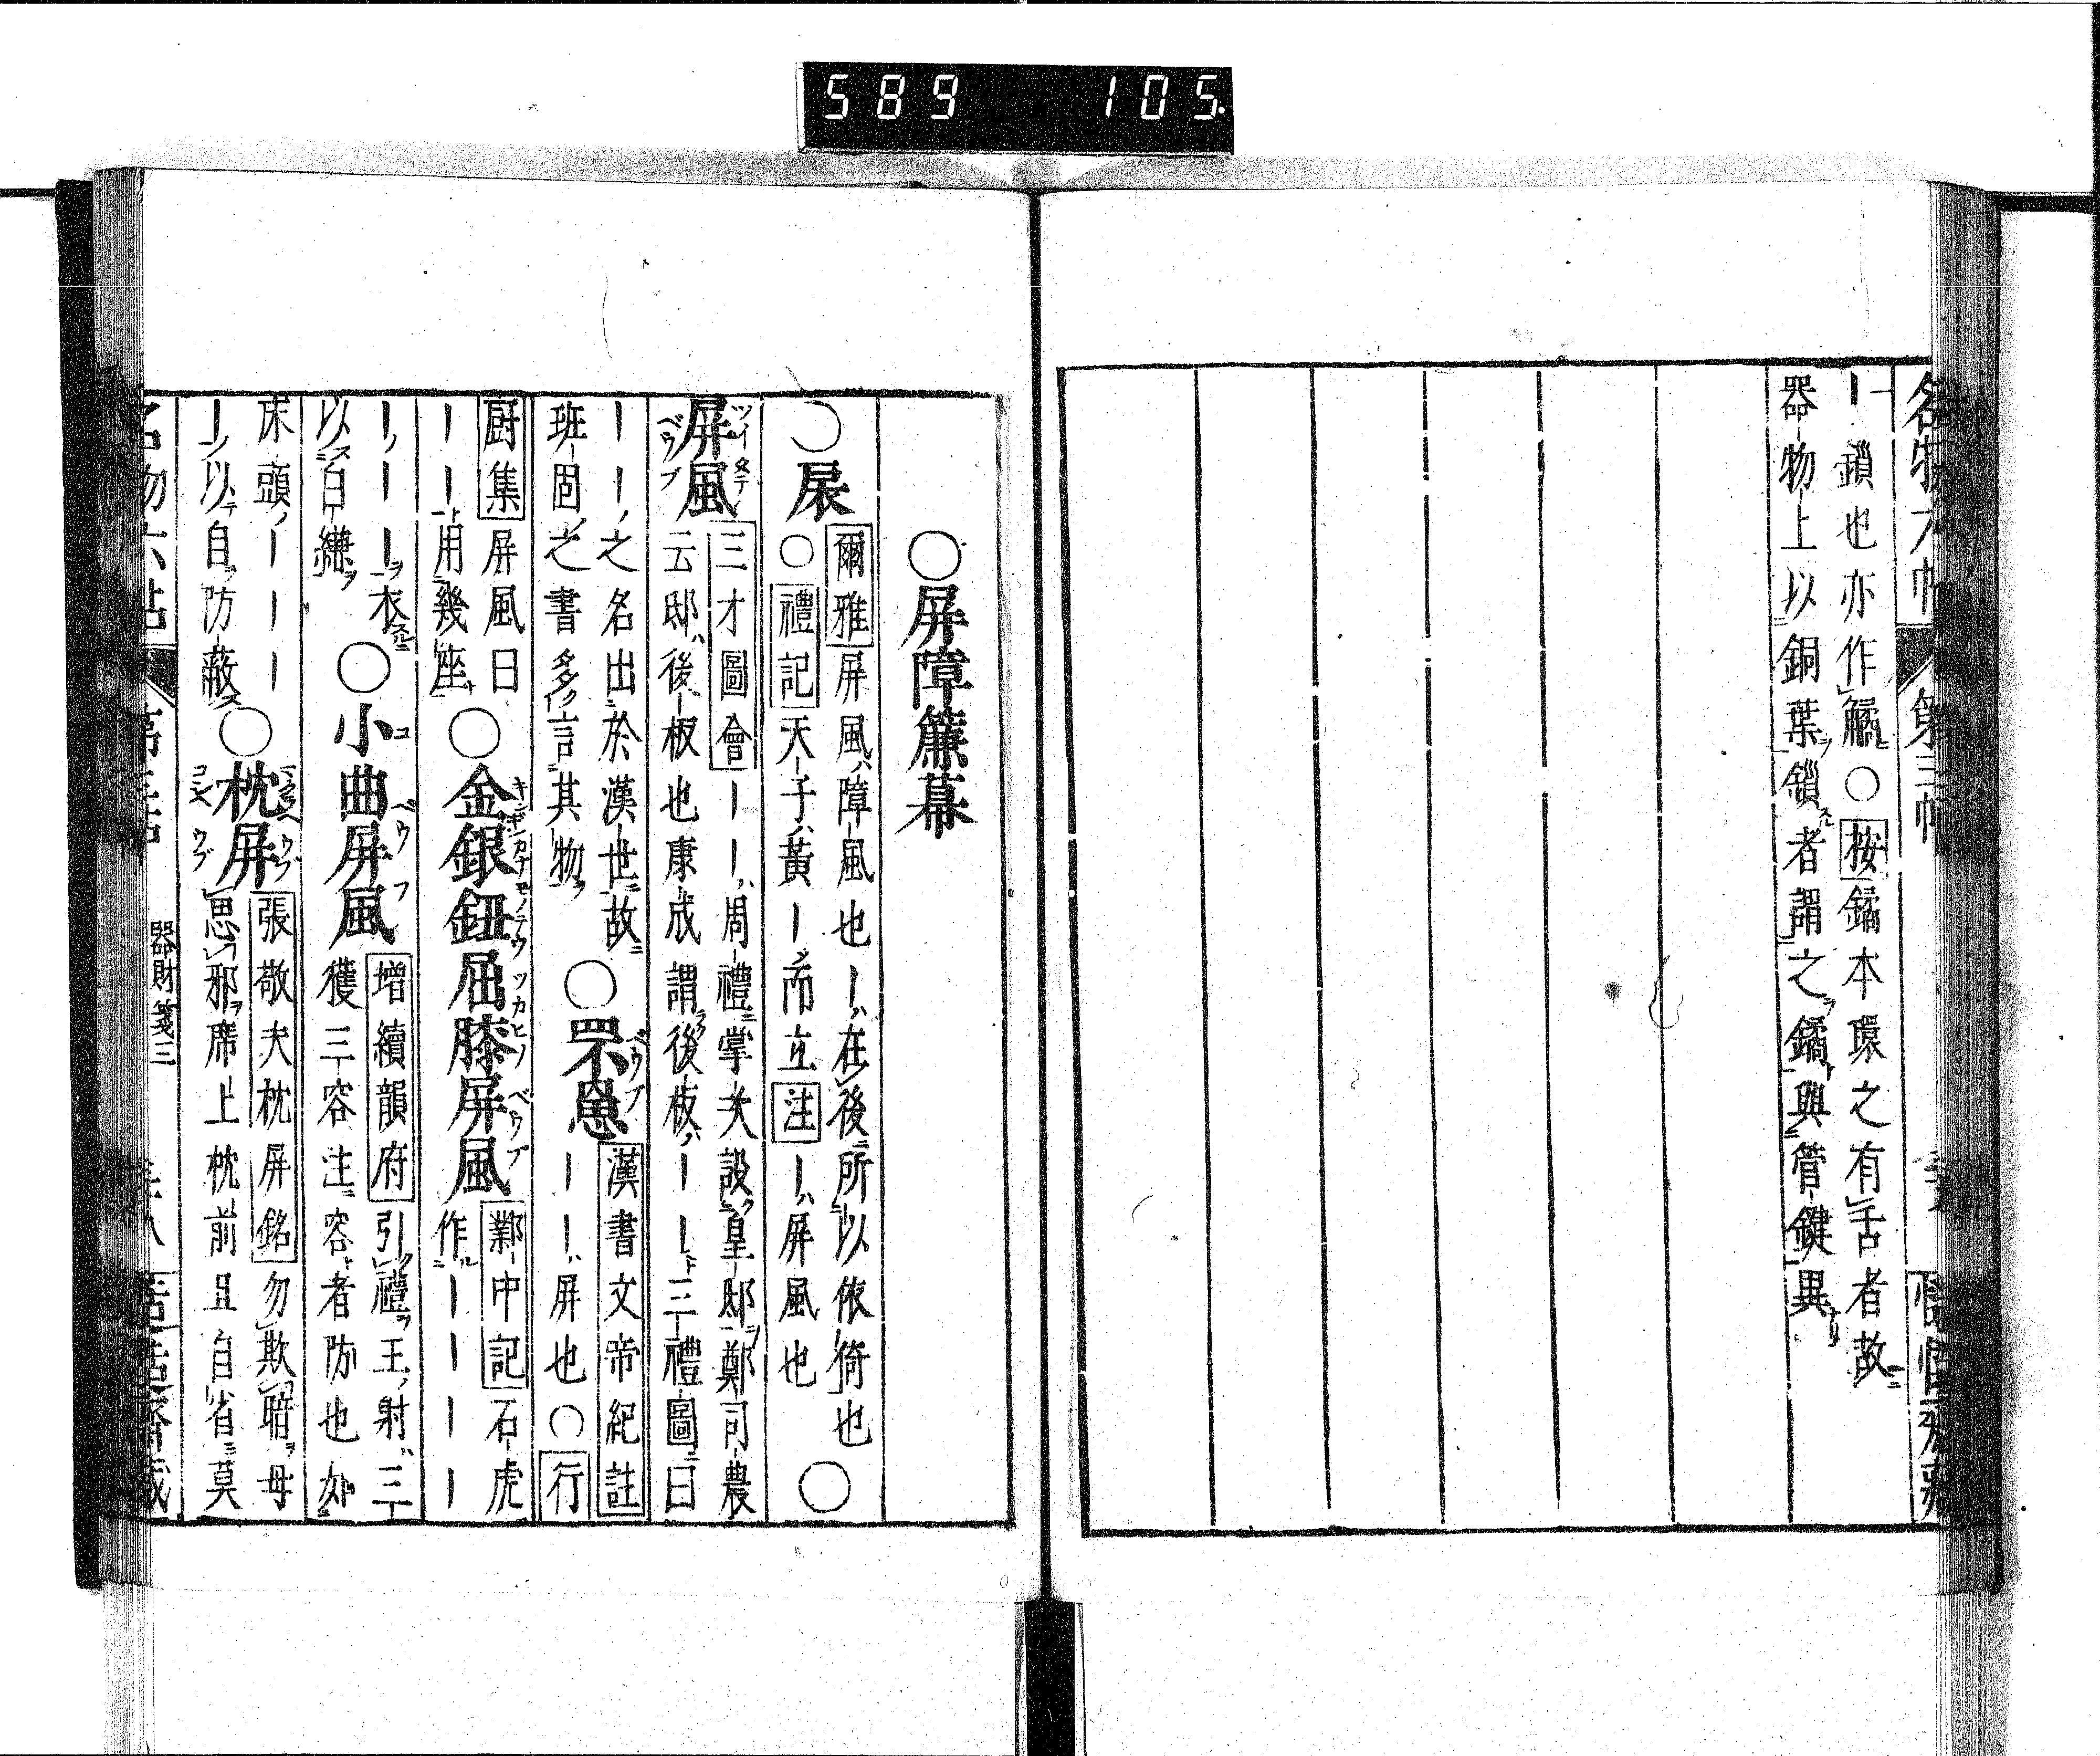 589 105
名物六帖 第三帖
｜鎖也亦作觼○按鐍本環之有舌者故
器物上以銅葉鎖者謂之鐍與管鍵異
○屏障簾幕
○扆
爾雅屏風障風也｜在後所以依倚也
○禮記天子黃｜而立注｜屏風也
○
屏風
ツイタテ
ベウブ
三才圖會｜｜周禮掌次設皇邸鄭司農
云邸後板也康成謂後板｜｜三禮圖曰
｜｜之名出於漢世故
班固之書多言其物
○罘罳
ベウブ
漢書文帝紀註
｜｜屏也○行
厨集屏風曰
｜｜用幾座
○金銀鈕屈膝屏風
キンギンカナモノテウツガヒノベウブ
鄴中記石虎
作｜｜｜｜
｜｜｜衣
以白縑
○小曲屏風
コベウフ
增續韻府引禮王射三
獲三容注容者防也如
床頭｜｜｜
｜以自防蔽
○枕屏
マクラベウブ
張敬夫枕屏銘勿欺暗毋
思邪席上枕前且自省莫
名物六帖
器財箋三